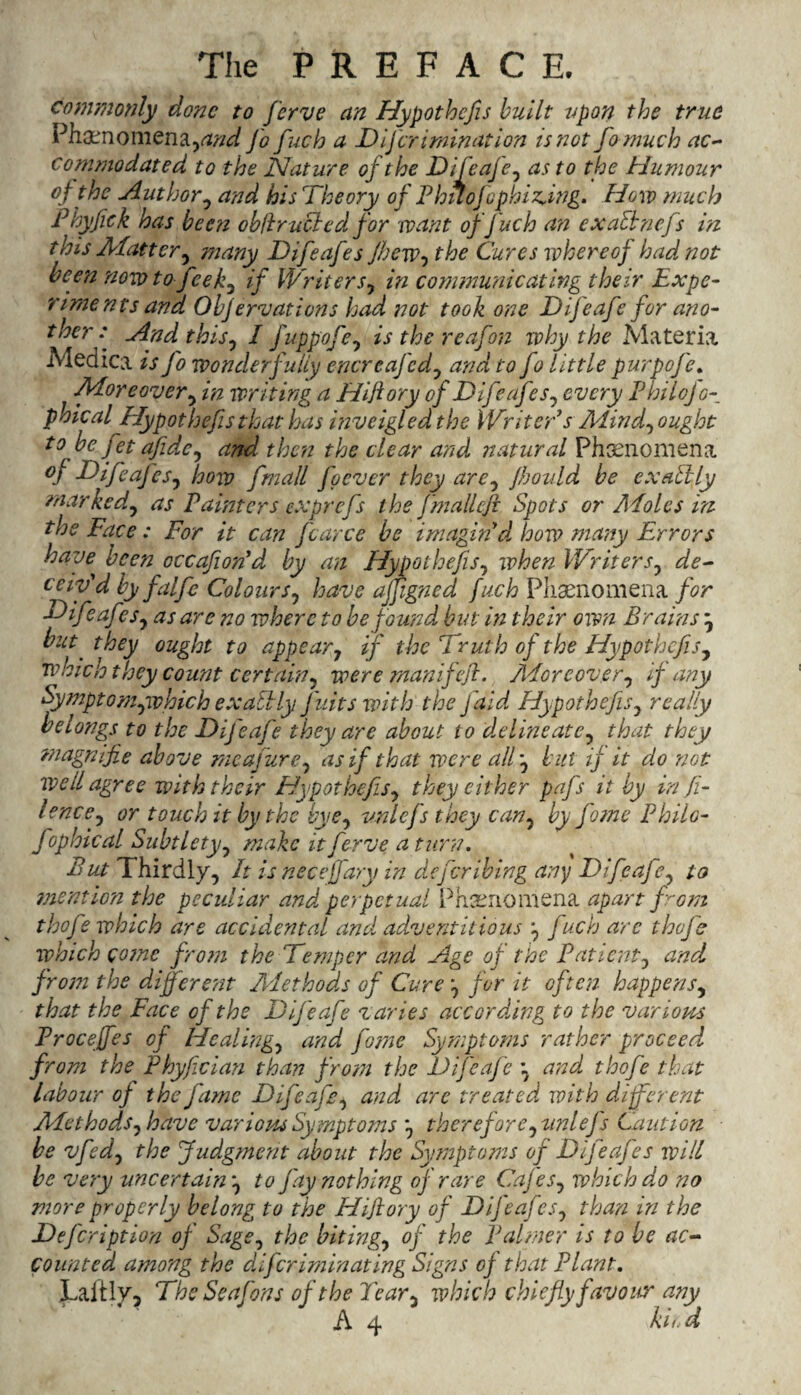 The PREFACE.
commonly done to ſerve an Hypotheſis built upon the true
Phænomena, and ſo ſuch a Diſcrimination is not ſo much ac-
commodated to the Nature of the Diſeaſe, as to the Humour
of the Author, and his Theory of Philoſophizing. How much
Phyſick has been obſtructed for want of ſuch an exactneſs in
this Matter, many Diſeaſes ſhew, the Cures whereof had not
been now to ſeek, if Writers, in communicating their Expe-
riments and Obſervations had not took one Diſeaſe for ano-
ther: And this, I ſuppoſe, is the reaſon why the Materia
Medica is ſo wonderfully encreaſed, and to ſo little purpoſe.
Moreover, in writing a Hiſtory of Diſeaſes, every Philoſo-
phical Hypotheſis that has inveigled the Writer's Mind, ought
to be ſet aſide, and then the clear and natural Phænomena
of Diſeaſes, how ſmall ſoever they are, ſhould be exactly
marked, as Painters expreſs the ſmalleſt Spots or Moles in
the Face: For it can ſcarce be imagin'd how many Errors
have been occaſion'd by an Hypotheſis, when Writers, de-
ceiv'd by falſe Colours, have aſſigned ſuch Phænomena for
Diſeaſes, as are no where to be found but in their own Brains;
but they ought to appear, if the Truth of the Hypotheſis,
which they count certain, were manifeſt. Moreover, if any
Symptom, which exactly ſuits with the ſaid Hypotheſis, really
belongs to the Diſeaſe they are about to delineate, that they
magnifie above meaſure, as if that were all; but if it do not
well agree with their Hypotheſis, they either paſs it by in ſi-
lence, or touch it by the bye, unleſs they can, by ſome Philo-
ſophical Subtlety, make it ſerve a turn.
But Thirdly, It is neceſſary in deſcribing any Diſeaſe, to
mention the peculiar and perpetual Phænomena apart from
thoſe which are accidental and adventitious; ſuch are thoſe
which come from the Temper and Age of the Patient, and
from the different Methods of Cure; for it often happens,
that the Face of the Diſeaſe varies according to the various
Proceſſes of Healing, and ſome Symptoms rather proceed
from the Phyſician than from the Diſeaſe; and thoſe that
labour of the ſame Diſeaſe, and are treated with different
Methods, have various Symptoms; therefore, unleſs Caution
be vſed, the Judgment about the Symptoms of Diſeaſes will
be very uncertain; to ſay nothing of rare Caſes, which do no
more properly belong to the Hiſtory of Diſeaſes, than in the
Deſcription of Sage, the biting, of the Palmer is to be ac-
counted among the diſcriminating Signs of that Plant.
Laſtly, The Seaſons of the Year, which chiefly favour any
A 4 kind